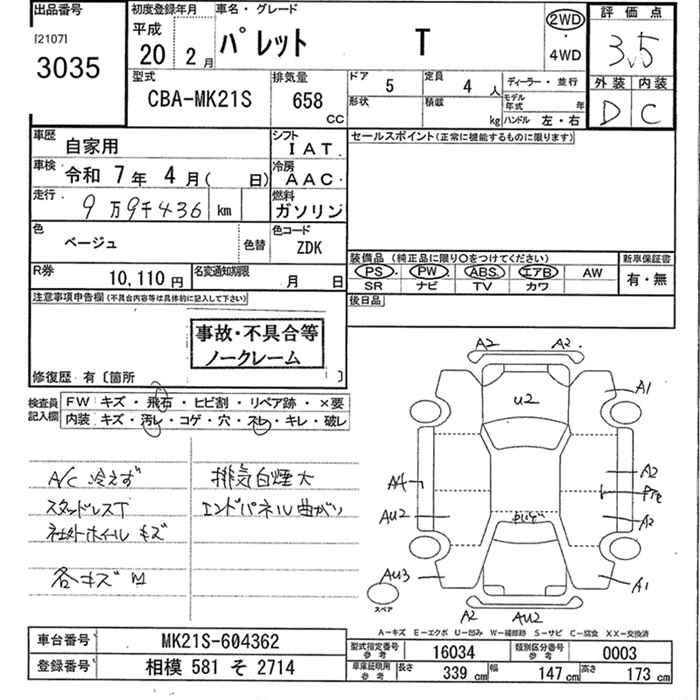 出品番号
[2107]
3035
初度登録年月
平成
20 2月
車名・グレード
パレット T
2WD
・
4WD
評価点
3.5
外装 内装
D C
型式
CBA-MK21S
排気量
658
CC
ドア
5
定員
4 人
形状
積載
kg
ディーラー・並行
モデル年式 年
ハンドル 左・右
車歴
自家用
シフト
IAT
車検
令和 7年 4月( 日)
冷房
AAC
走行
9万9千436 km
燃料
ガソリン
色
ベージュ
色替
色コード
ZDK
R券
10,110円
名変通知期限
月 日
セールスポイント(正常に機能するものに限ります)
装備品 (純正品に限り○をつけてください)
新車保証書
PS PW ABS エアB AW
SR ナビ TV カワ
有・無
後日品
注意事項申告欄(不具合内容等は具体的に記入して下さい)
事故・不具合等
ノークレーム
修復歴 有〔箇所 〕
検査員
記入欄
FW キズ・飛石・ヒビ割・リペア跡・×要
内装 キズ・汚レ・コゲ・穴・ネレ・キレ・破レ
A/C 冷えず
スタッドレスT
社外ホイール キズ
各キズ M
排気白煙大
エンドパネル曲がり
A2 A2
A1
U2
A4
A2
AU2
A2
AU3
A1
スペア
A2 AU2
A-キズ E-エクボ U-凹み W-補修跡 S-サビ C-腐食 XX-交換済
車台番号
MK21S-604362
登録番号
相模 581 そ 2714
型式指定番号
参考
16034
類別区分番号
参考
0003
車庫証明用
参考
長さ
339 cm
幅
147 cm
高さ
173 cm